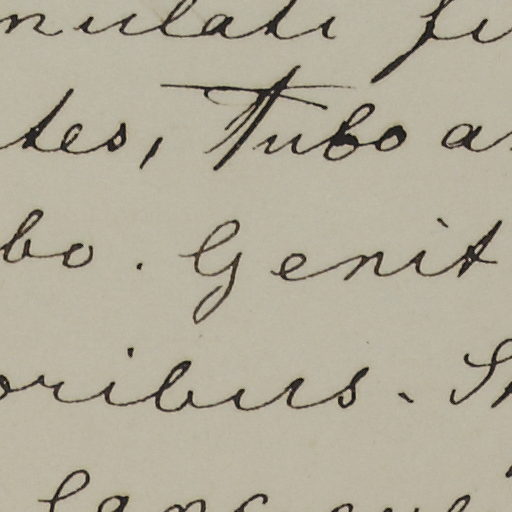 nulati fi
tes, Tubo a
bo. Genit
oribus. S